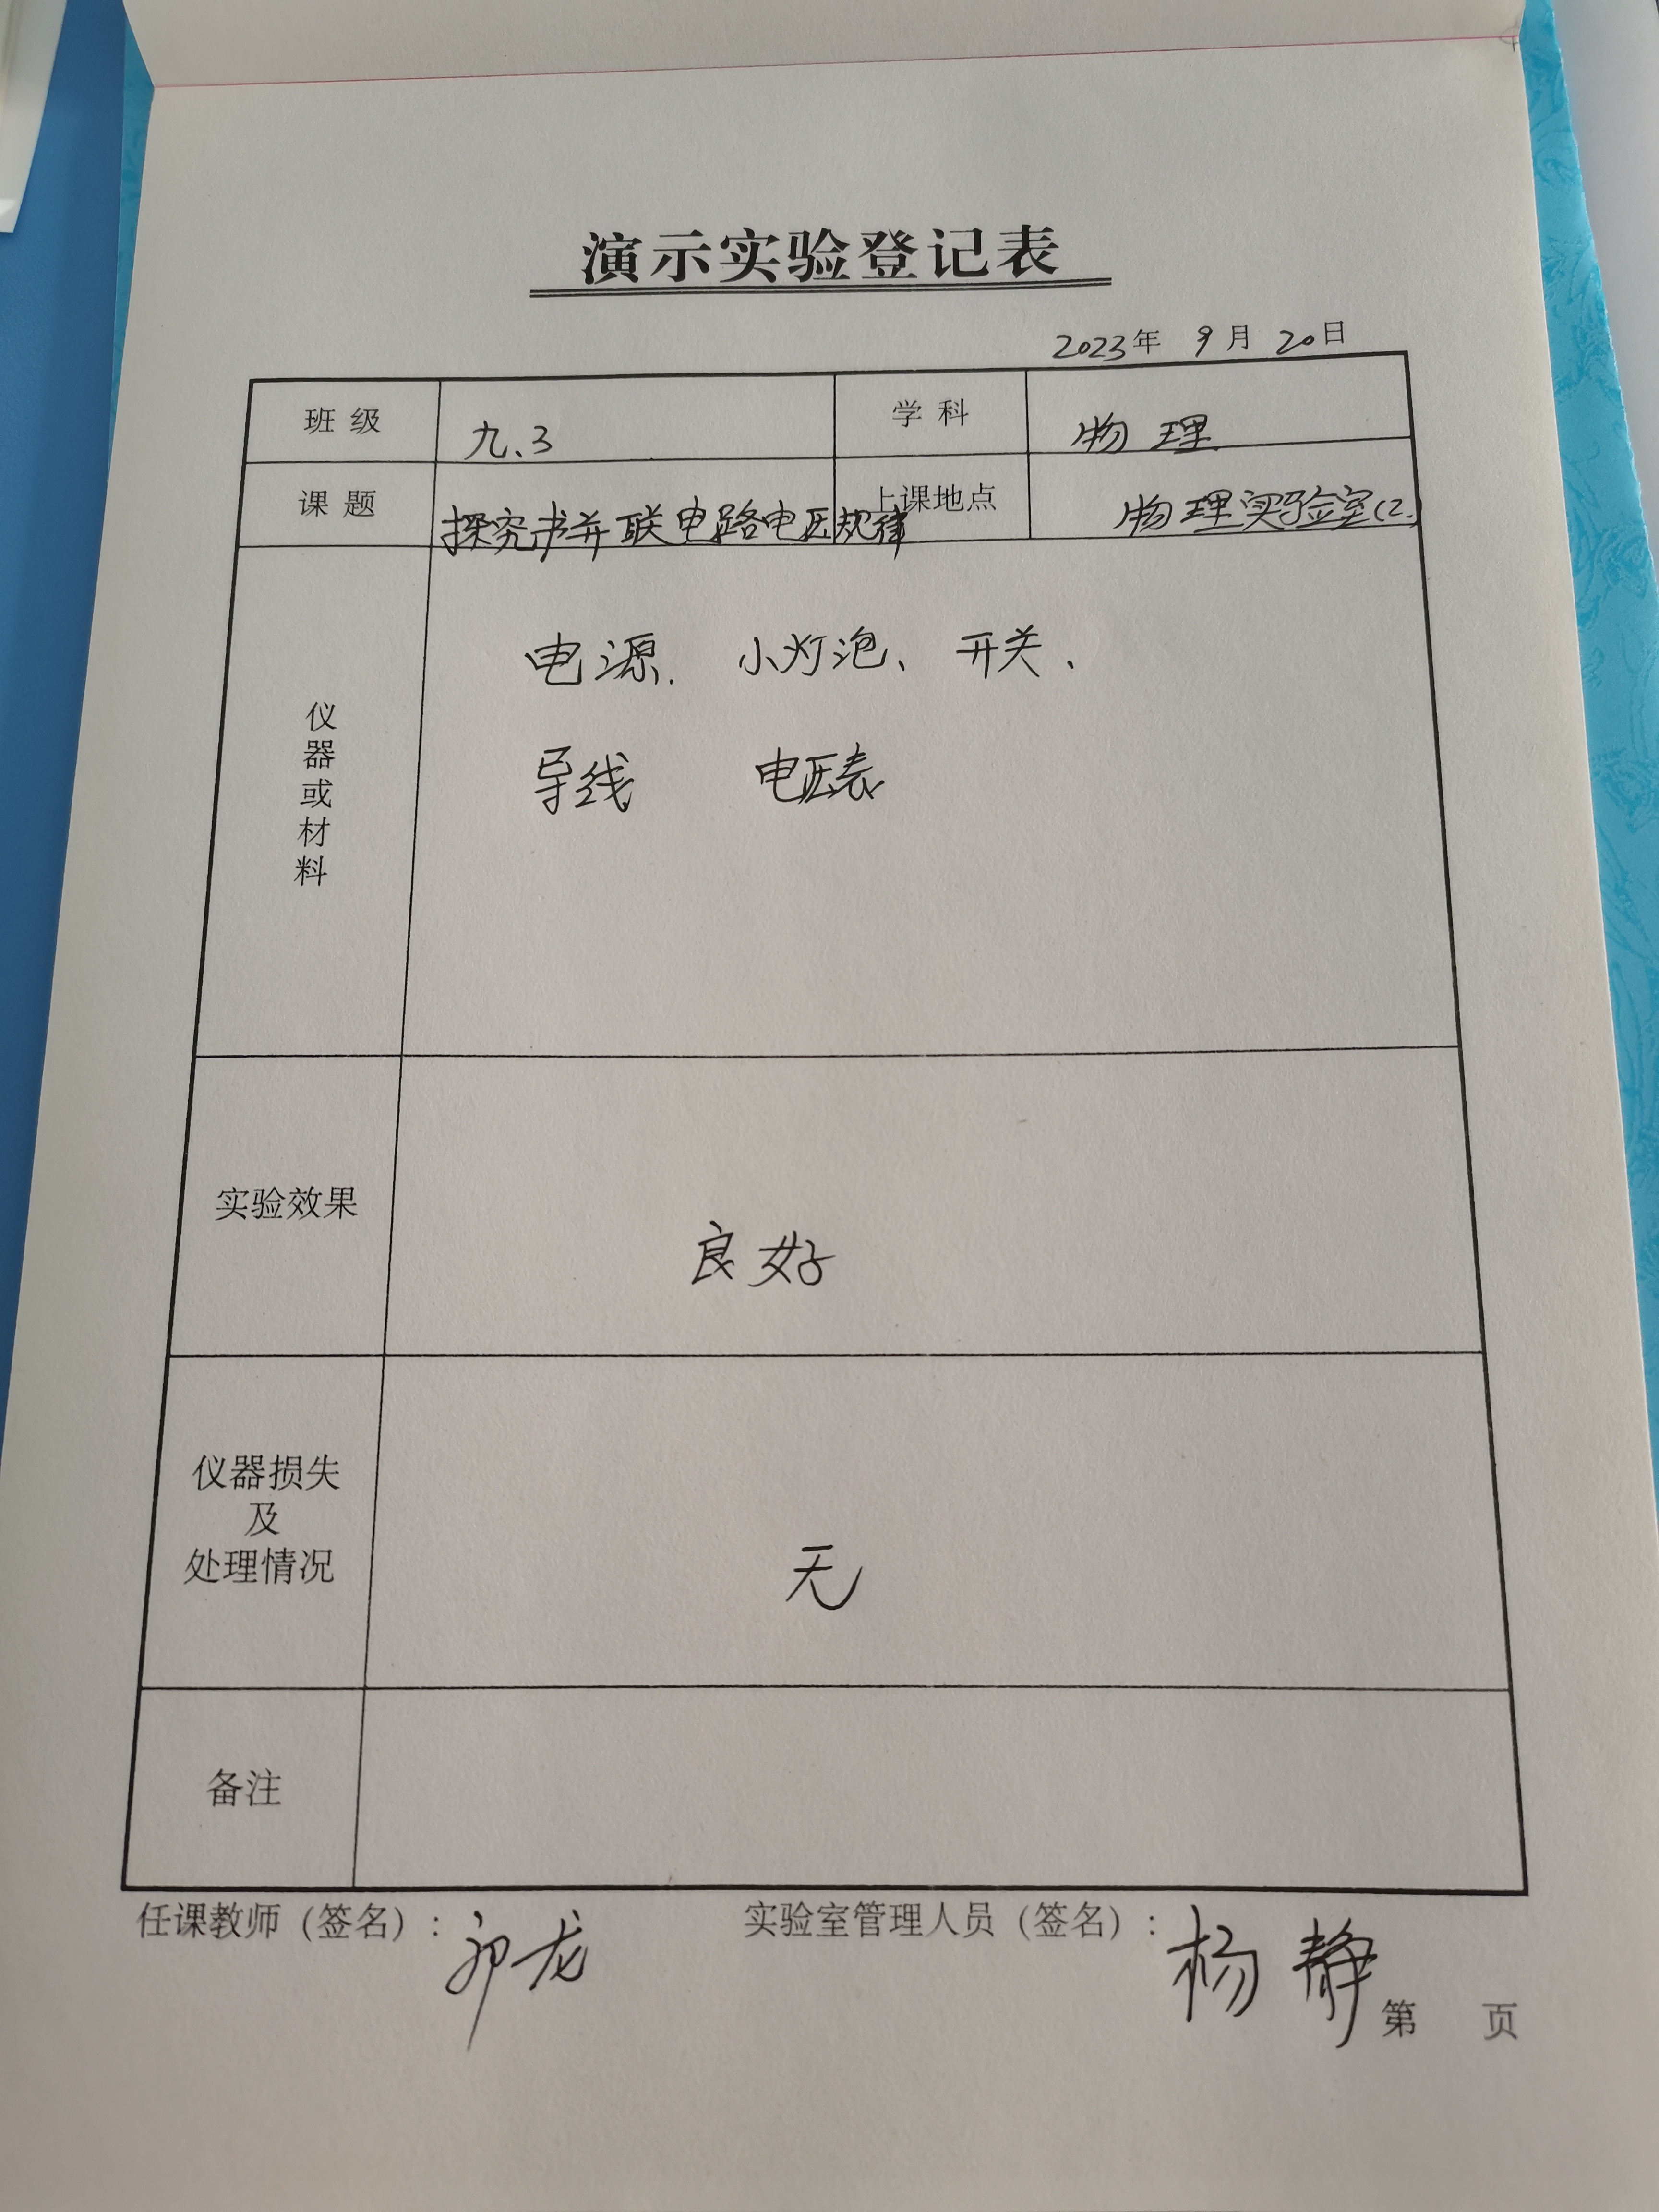 演示实验登记表
2023年 9月 20日
班级 九、3 学科 物理
课题 探究书并联电路电压规律 上课地点 物理实验室(2)
仪器或材料
电源、 小灯泡、 开关、
导线 电压表
实验效果 良好
仪器损失
及
处理情况
无
备注
任课教师（签名）： 龙
实验室管理人员（签名）： 杨静
第 页